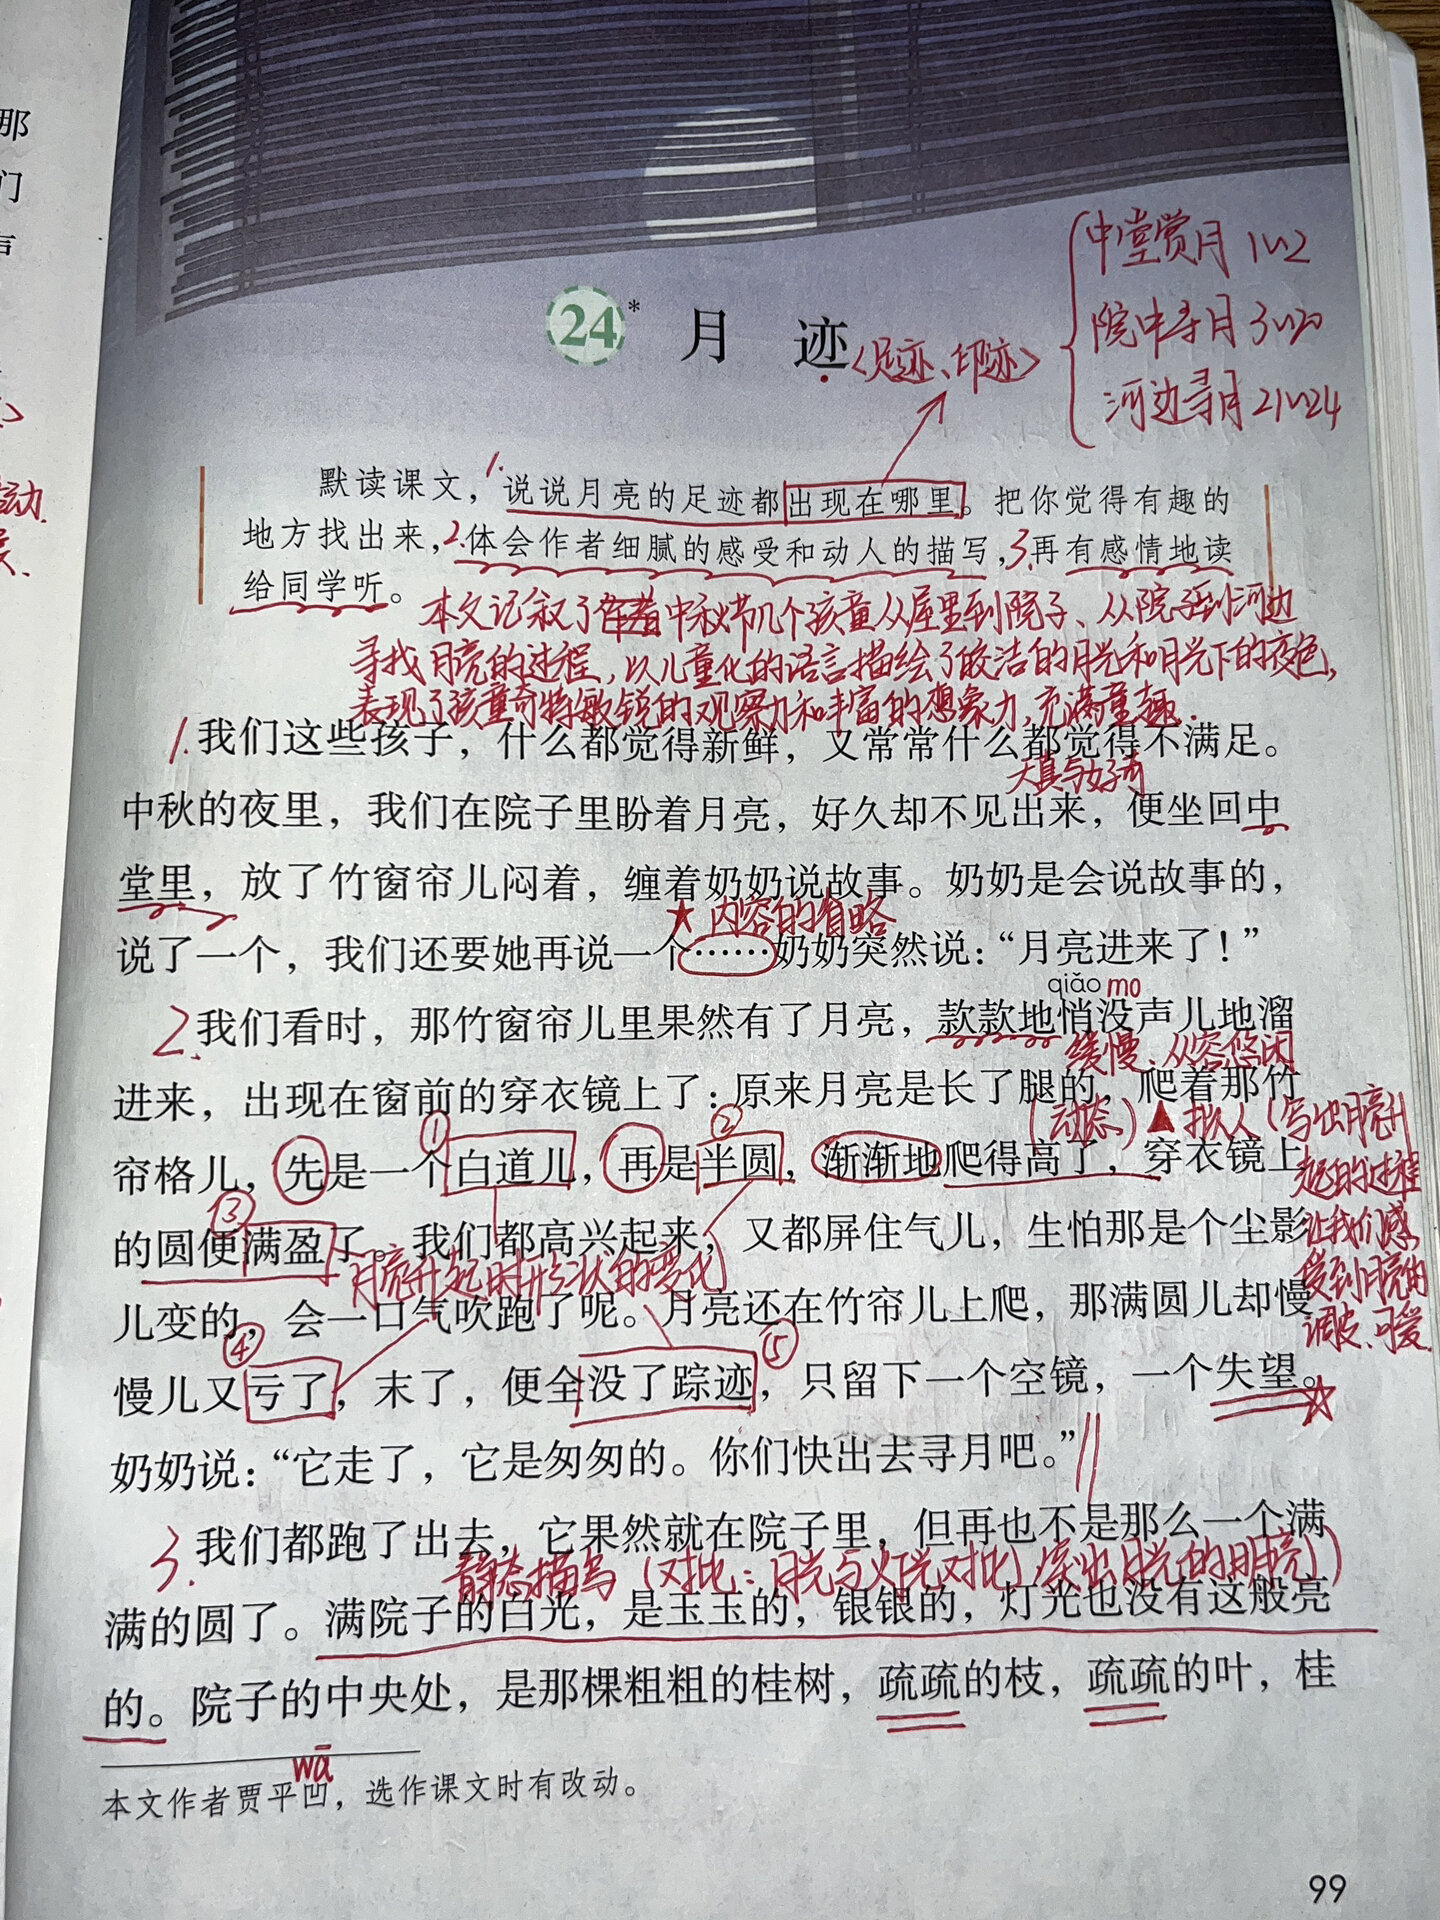 那
们
声
中堂赏月 1~2
院中寻月 3~20
河边寻月 21~24
24* 月 迹
<足迹、印迹>
默读课文，1.说说月亮的足迹都出现在哪里。把你觉得有趣的
地方找出来，2.体会作者细腻的感受和动人的描写，3.再有感情地读
给同学听。
本文记叙了中秋节几个孩童从屋里到院子、从院子到河边
寻找月亮的过程，以儿童化的语言描绘了皎洁的月光和月光下的夜色，
表现了孩童奇特敏锐的观察力和丰富的想象力，充满童趣.
1.我们这些孩子，什么都觉得新鲜，又常常什么都觉得不满足。
天真与好奇
中秋的夜里，我们在院子里盼着月亮，好久却不见出来，便坐回中
堂里，放了竹窗帘儿闷着，缠着奶奶说故事。奶奶是会说故事的，
★内容的省略
说了一个，我们还要她再说一个……奶奶突然说：“月亮进来了！”
qiǎo mo
2.我们看时，那竹窗帘儿里果然有了月亮，款款地悄没声儿地溜
缓慢、从容悠闲
进来，出现在窗前的穿衣镜上了：原来月亮是长了腿的，爬着那竹
① ② (动态) ▲拟人(写出月亮升
帘格儿，先是一个白道儿，再是半圆，渐渐地爬得高了，穿衣镜上
起的过程
③
的圆便满盈了。我们都高兴起来，又都屏住气儿，生怕那是个尘影
让我们感
月亮升起时形状的变化
受到月亮的
儿变的，会一口气吹跑了呢。月亮还在竹帘儿上爬，那满圆儿却慢
调皮、可爱
④ ⑤
慢儿又亏了，末了，便全没了踪迹，只留下一个空镜，一个失望。
奶奶说：“它走了，它是匆匆的。你们快出去寻月吧。”
3.我们都跑了出去，它果然就在院子里，但再也不是那么一个满
静态描写(对比：月光与灯光对比)突出月光的明亮)
满的圆了。满院子的白光，是玉玉的，银银的，灯光也没有这般亮
的。院子的中央处，是那棵粗粗的桂树，疏疏的枝，疏疏的叶，桂
wā
本文作者贾平凹，选作课文时有改动。
99